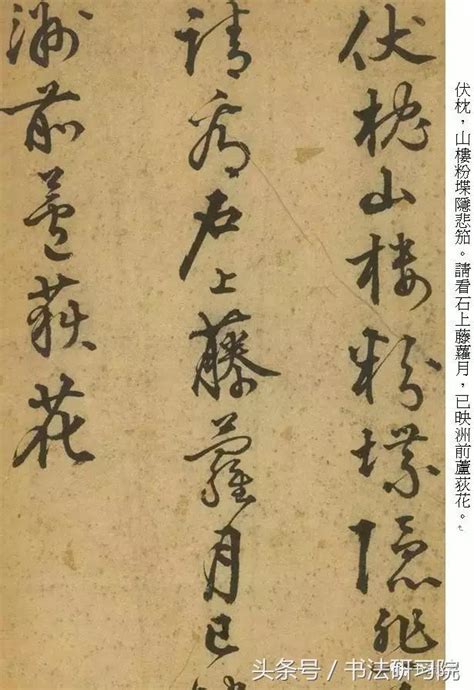 伏枕，山樓粉堞隱悲笳。請看石上藤蘿月，已映洲前蘆荻花。
伏枕山楼粉堞隱悲
請看石上藤蘿月已
洲前蘆荻花
头条号／书法研习院